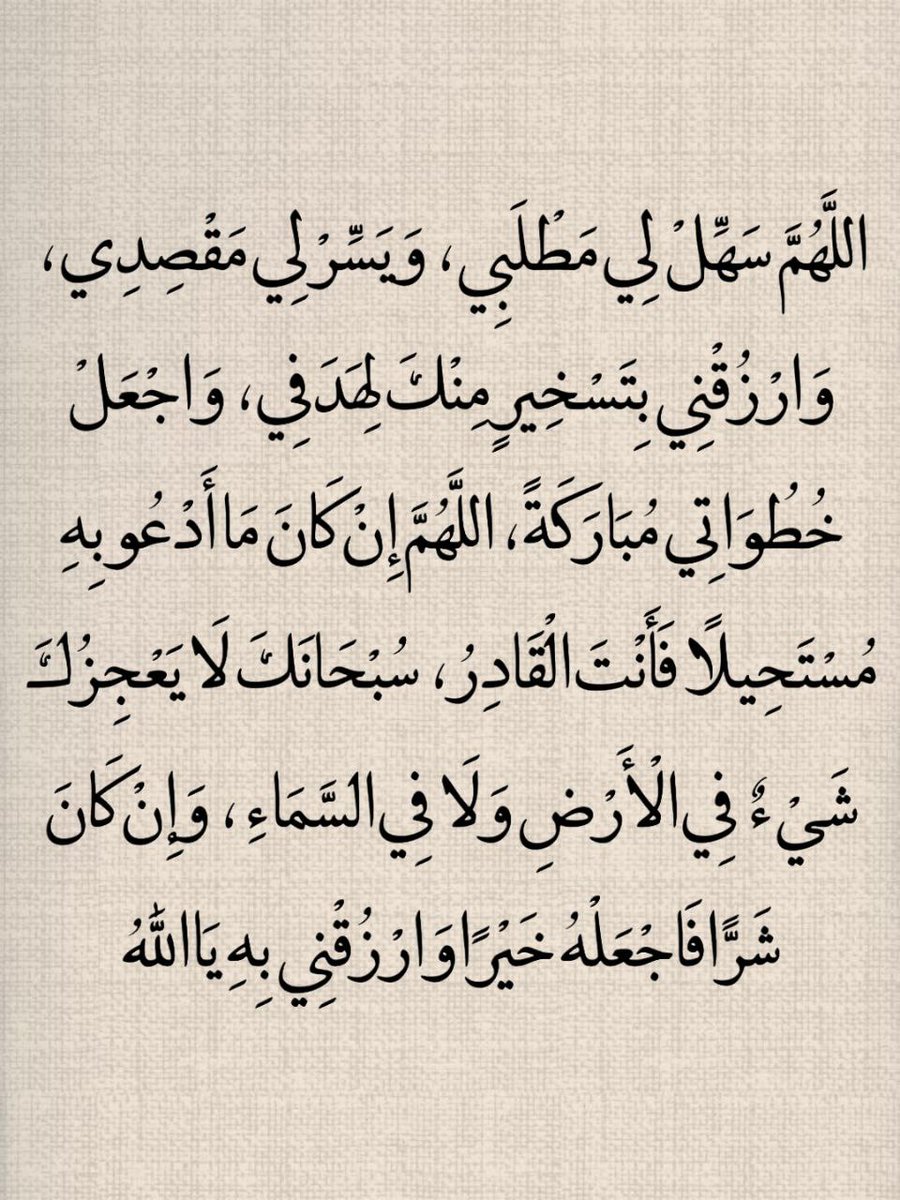 اللَّهُمَّ سَهِّلْ لِي مَطْلَبِي، وَيَسِّرْ لِي مَقْصِدِي،
وَارْزُقْنِي بِتَسْخِيرٍ مِنْكَ لِهَدَفِي، وَاجْعَلْ
خُطُوَاتِي مُبَارَكَةً، اللَّهُمَّ إِنْ كَانَ مَا أَدْعُو بِهِ
مُسْتَحِيلًا فَأَنْتَ الْقَادِرُ، سُبْحَانَكَ لَا يَعْجِزُكَ
شَيْءٌ فِي الْأَرْضِ وَلَا فِي السَّمَاءِ، وَإِنْ كَانَ
شَرًّا فَاجْعَلْهُ خَيْرًا وَارْزُقْنِي بِهِ يَا اللَّهُ